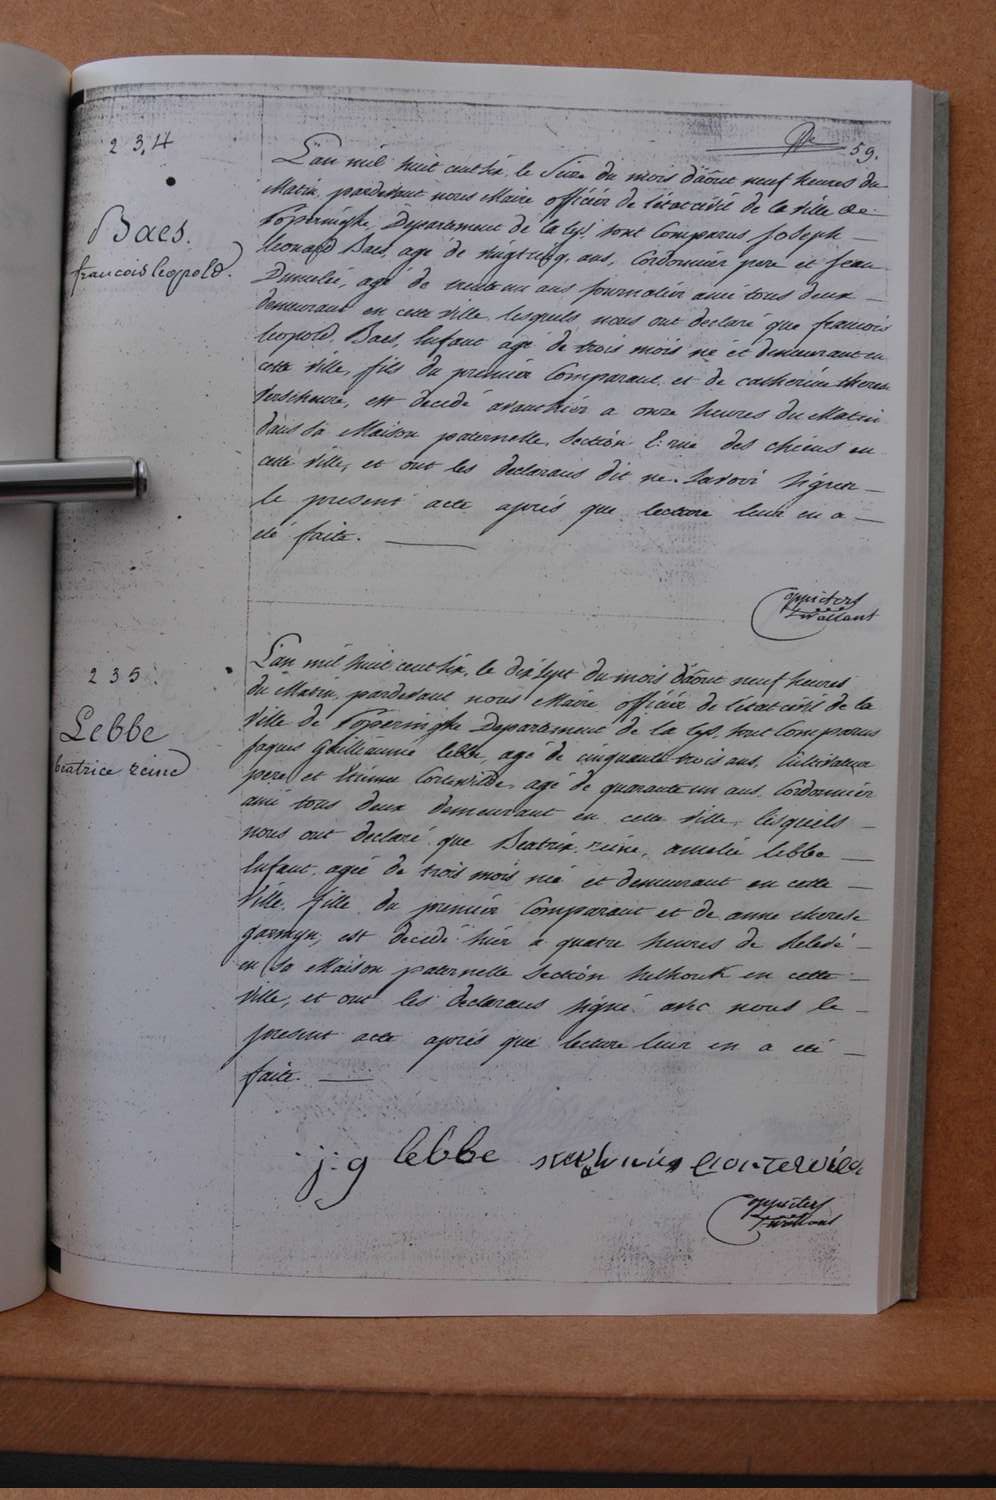 59.
234
Baes.
francois leopold.
L'an mil huit cent six, le Seize du mois d'août neuf heures du
Matin, pardevant nous Maire officier de l'état civil de la ville de
Poperinghe, Departement de la Lys, sont Comparus Joseph
leonard Baes, agé de vingt cinq ans, Cordonnier pere et Jean
agé de trente un ans journalier ami tous deux
demeurant en cette ville, lesquels nous ont declaré que francois
leopold Baes, Enfant agé de trois mois né et demeurant en
cette ville, fils du premier Comparant et de catherine therese
est decedé avanthier a onze heures du Matin
dans sa Maison paternelle, Section E: rue des chiens en
cette ville, et ont les declarans dit ne Savoir signer
le present acte après que lecture leur en a
été faite.
235
Lebbe
beatrice reine
L'an mil huit cent six, le dix sept du mois d'août neuf heures
du Matin, pardevant nous Maire officier de l'état civil de la
Ville de Poperinghe Departement de la Lys, sont Comparus
Jaques Guilliaume lebbe, agé de cinquante trois ans, Cultivateur
pere et agé de quarante un ans, Cordonnier
ami tous deux demeurant en cette ville, lesquels
nous ont declaré que Beatrix reine, amelie lebbe
Enfant agée de trois mois née et demeurant en cette
Ville, fille du premier Comparant et de anne therese
garmyn, est decedé hier a quatre heures de relevé
en Sa Maison paternelle Section helhouk en cette
ville, et ont les declarans signé avec nous le
present acte après que lecture leur en a été
faite.
j: g lebbe